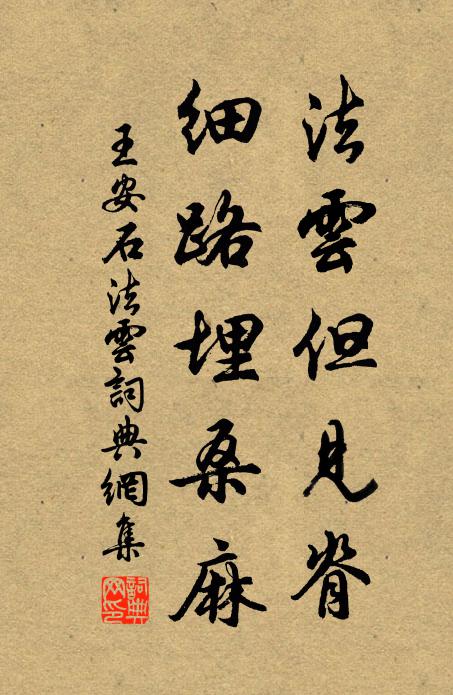 法雲但見脊
細路埋桑麻
王安石法雲詞典網集
詞典網印